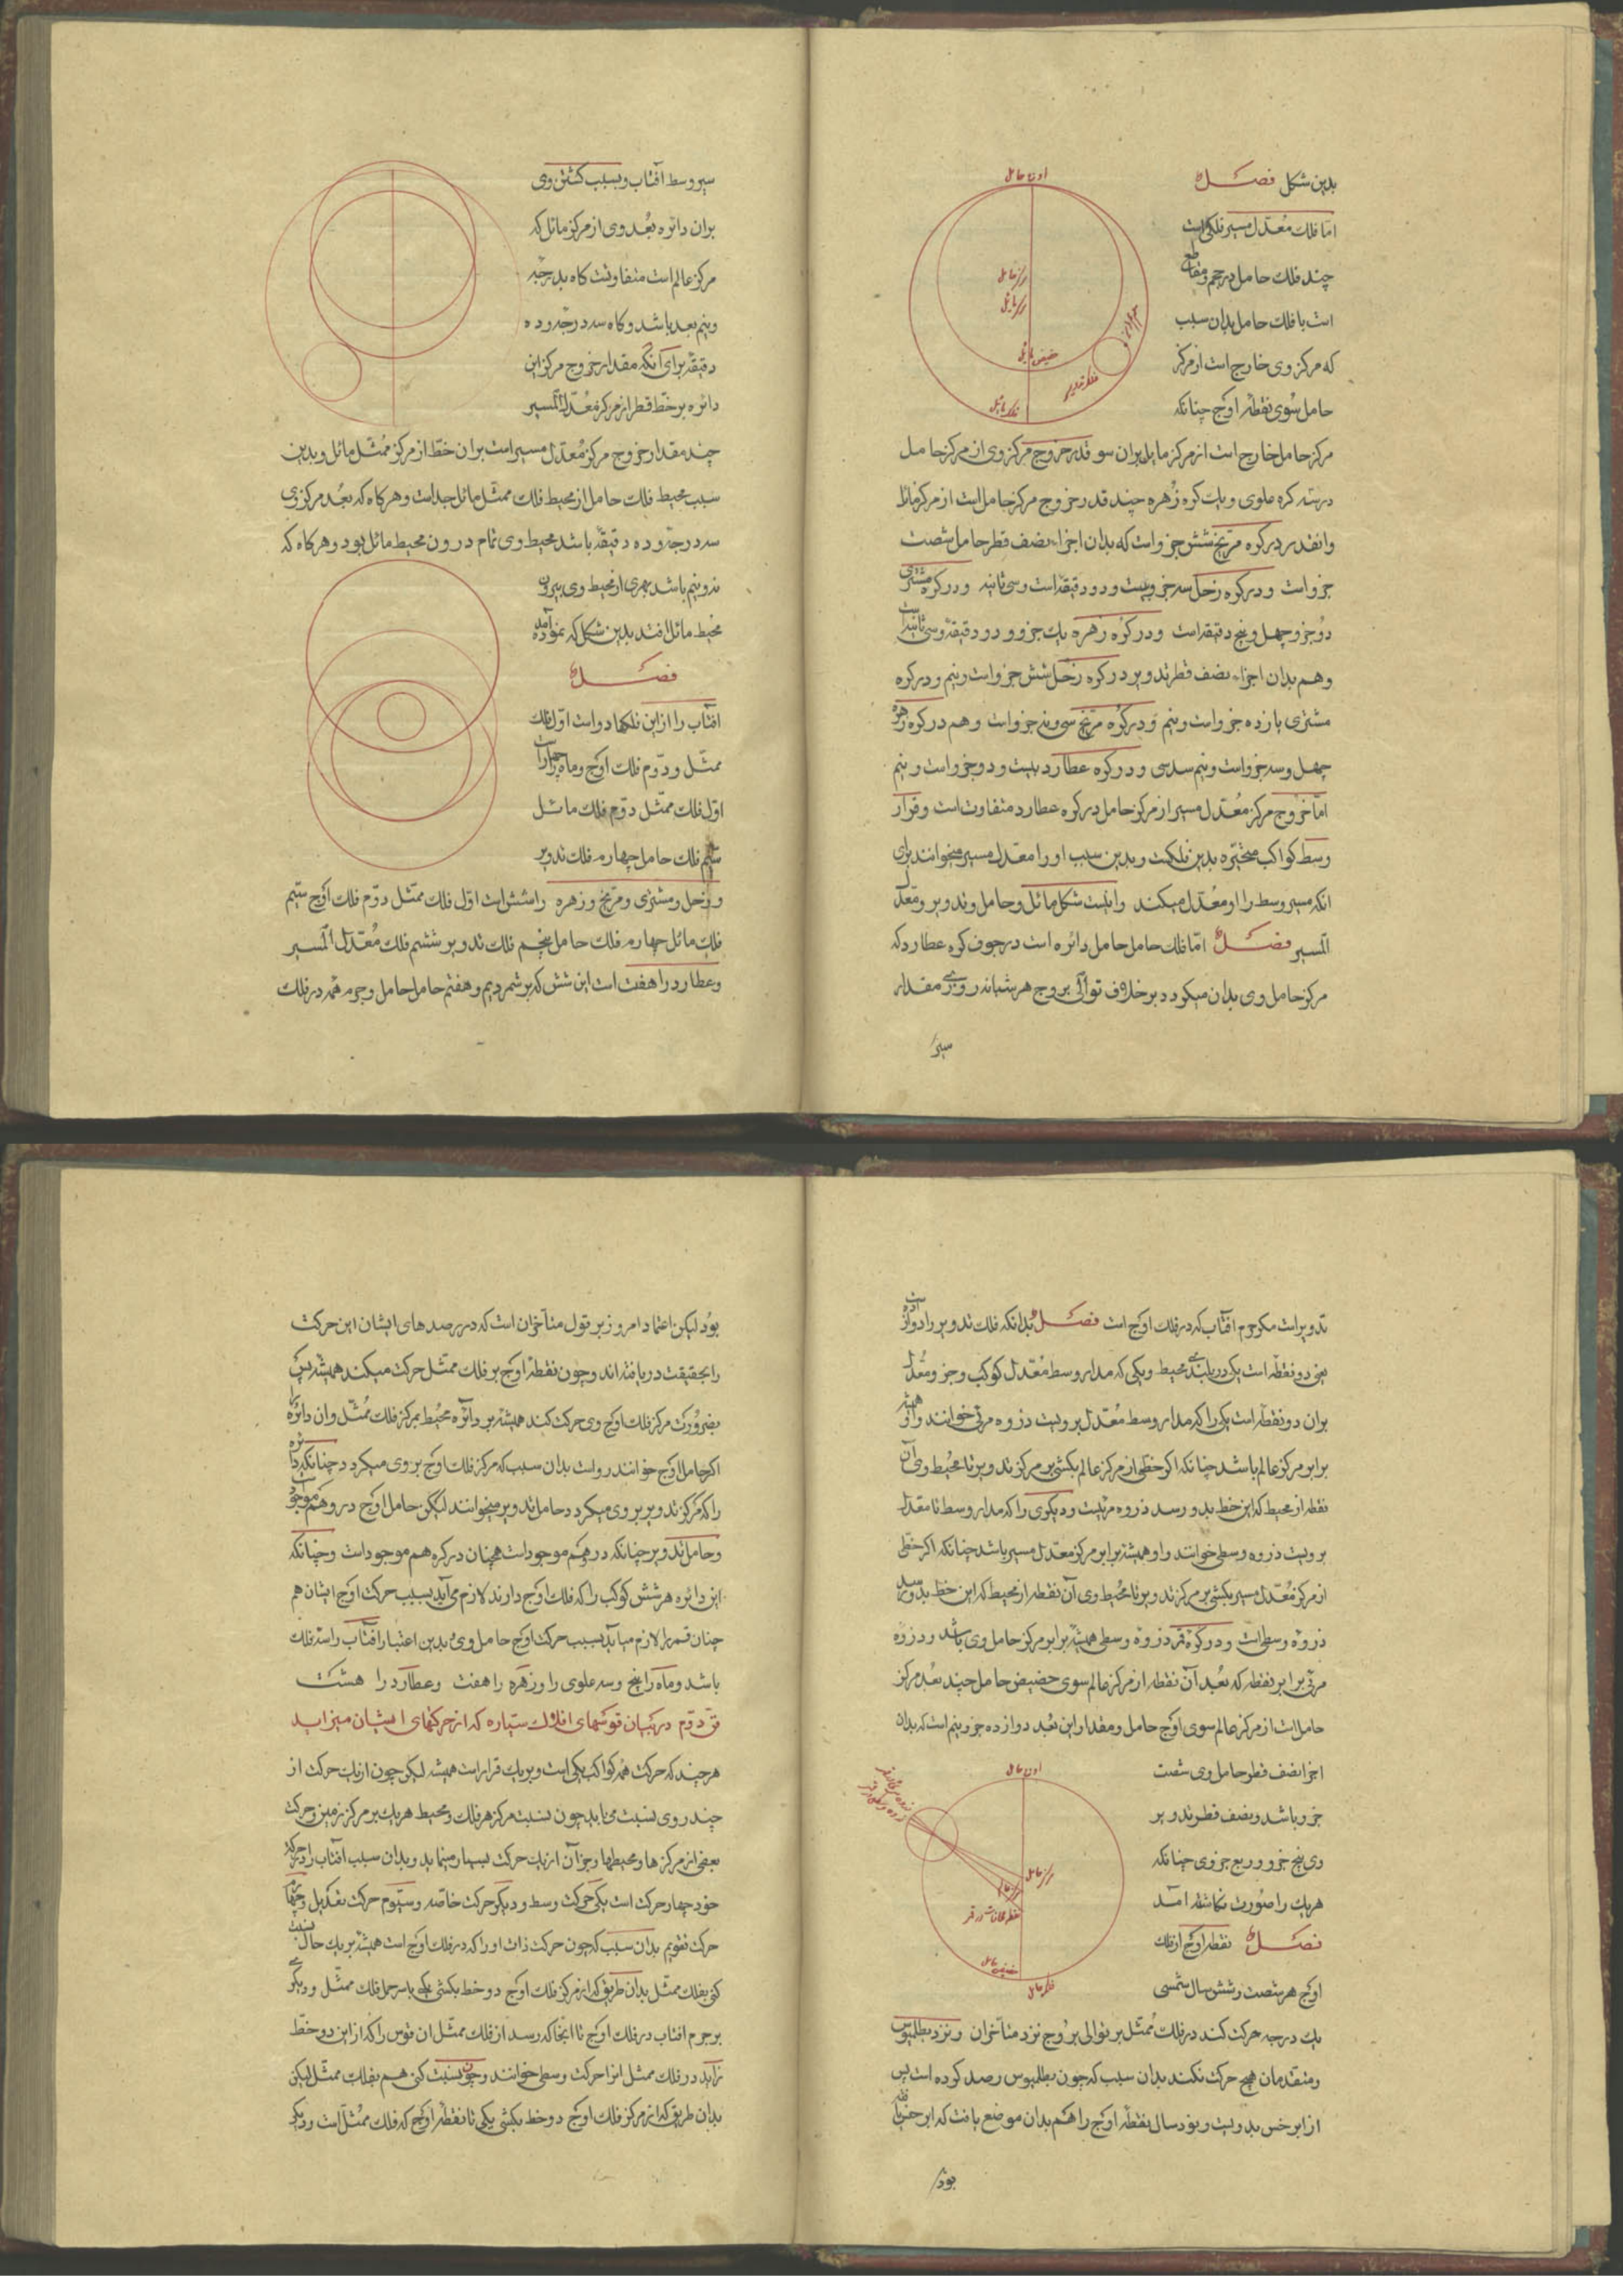 بدین شکل فصل
اما فلک معدل مسیر فلکی است
چند فلک حامل در حجم و مقاطع
است با فلک حامل بدان سبب
که مرکز وی خارج است از مرکز
حامل سوی نقطه اوج چنانکه
مرکز حامل خارج است از مرکز مایل بران سو قدر خروج مرکز وی از مرکز حامل
در سه کره علوی و یک کره زهره چند قدر خروج مرکز حامل است از مرکز مائل
وانقدر در کره مریخ شش جزو است که بدان اجزاء نصف قطر حامل شصت
جزو است و در کره زحل سه جزو و بیست و دو دقیقه است و سی ثانیه و در کره مشتری
دو جزو و چهل و پنج دقیقه است و در کره زهره یک جزو و دو دقیقه و سی ثانیه است
و هم بدان اجزاء نصف قطر تدویر در کره زحل شش جزو است و نیم و در کره
مشتری یازده جزو است و نیم و در کره مریخ سی و نه جزو است و هم در کره زهره
چهل و سه جزو است و نیم سدسی و در کره عطارد بیست و دو جزو است و نیم
اما خروج مرکز معدل مسیر از مرکز حامل در کره عطارد متفاوت است و قرار
وسط کواکب متحیره بدین فلکست و بدین سبب او را معدل مسیر میخوانند برای
انکه مسیر وسط را او معدل میکند و اینست شکل مائل و حامل و تدویر و معدل
المسیر فصل اما فلک حامل حامل دائره است در جوف کره عطارد که
مرکز حامل وی بدان میکردد بر خلاف توالی بروج هر شبانه روزی مقدار
سیر
اوج حامل
مرکز حامل
مرکز مایل
حضیض مایل
فلک تدویر
فلک مایل
سیر وسط آفتاب و بسبب کشتن وی
بران دائره بعد وی از مرکز مائل که
مرکز عالم است متفاوتست کاه بدرجه
و نیم بعد باشد و کاه سه درجه و ده
دقیقه برای انکه مقدار خروج مرکز این
دائره بر خط قطر از مرکز معدل المسیر
چند مقدار خروج مرکز معدل مسیر است بران خط از مرکز ممثل مائل و بدین
سبب محیط فلک حامل از محیط فلک ممثل مائل جداست و هرکاه که بعد مرکز وی
سه درجه و ده دقیقه باشد محیط وی تمام درون محیط مائل بود و هرکاه که
نه و نیم باشد بهری از محیط وی بیرون
محیط مائل افتد بدین شکل که نموده آمد
فصل
افتاب را از این فلکها دو است اول فلک
ممثل و دوم فلک اوج و ماه را چهار است
اول فلک ممثل دوم فلک مائل
سیم فلک حامل چهارم فلک تدویر
و زحل و مشتری و مریخ و زهره را شش است اول فلک ممثل دوم فلک اوج سیم
فلک مائل چهارم فلک حامل پنجم فلک تدویر ششم فلک معدل المسیر
و عطارد را هفت است این شش که بر شمردیم و هفتم حامل حامل و جرم همه در فلک
تدویر است مکر جرم افتاب که در فلک اوج است فصل بدانکه فلک تدویر را دو
یعنی دو نقطه است یکی در بلندی محیط و یکی که مدار وسط معدل کوکب و جزو معدل
بران دو نقطه است یکی را که مدار وسط معدل برویست ذروه مرئی خوانند و او همیشه
برابر مرکز عالم باشد چنانکه اکر خطی از مرکز عالم بکشی بر مرکز تدویر تا محیط وی آن
نقطه از محیط که این خط بدو رسد ذروه مرئیست و دیکری را که مدار وسط نا معدل
برویست ذروه وسطی خوانند و او همیشه برابر مرکز معدل مسیر باشد چنانکه اکر خطی
از مرکز معدل مسیر بکشی بر مرکز تدویر تا محیط وی آن نقطه از محیط که این خط بدو رسد
ذروه وسطی است و در کره قمر ذروه وسطی همیشه برابر مرکز حامل وی باشد و ذروه
مرئی برابر نقطه که بعد آن نقطه از مرکز عالم سوی حضیض حامل چند بعد مرکز
حامل است از مرکز عالم سوی اوج حامل و مقدار این بعد دوازده جزو و نیم است که بدان
اجزا نصف قطر حامل وی شصت
جزو باشد و نصف قطر تدویر
وی پنج جزو و ربع جزوی چنانکه
هر یک را صورت نکاشته آمد
فصل نقطه اوج از فلک
اوج هر شصت و شش سال شمسی
یک درجه حرکت کند در فلک ممثل بر توالی بروج نزد متأخران و نزد بطلمیوس
و متقدمان هیچ حرکت نکند بدان سبب که چون بطلمیوس رصد کرده است پس
از ابرخس بدویست و نود سال نقطه اوج را هم بدان موضع یافت که ابرخس یافته
بود
اوج حامل
مرکز حامل
مرکز عالم
نقطه محاذات در قمر
حضیض حامل
فلک حامل
بود لیکن اعتماد امروز بر قول متأخران است که در رصدهای ایشان این حرکت
را بحقیقت دریافته اند و چون نقطه اوج بر فلک ممثل حرکت میکند همیشه پس
بضرورت مرکز فلک اوج وی حرکت کند همیشه بر دائره محیط بمرکز فلک ممثل وان دائره را
اکر حامل اوج خوانند رواست بدان سبب که مرکز فلک اوج بر وی میکردد چنانکه دائره
را که مرکز تدویر بر وی میکردد حامل تدویر میخوانند لیکن حامل اوج در وهم موجود است
و حامل تدویر چنانکه در وهم موجود است همچنان در کره هم موجود است و چنانکه
این دائره هر شش کوکب را که فلک اوج دارند لازم می آید بسبب حرکت اوج ایشان هم
چنان قمر را لازم میاید بسبب حرکت اوج حامل وی و بدین اعتبار افتاب را سه فلک
باشد و ماه را پنج و سه علوی را و زهره را هفت و عطارد را هشت
فن دوم در بیان قوسهای افلاک ستاره که از حرکتهای ایشان میزاید
هر چند که حرکت همه کواکب یکی است و بر یک قرار است همیشه لیکن چون از یک حرکت از
چند روی نسبت می یابد چون نسبت مرکز هر فلک و محیط هر یک بر مرکز زمین و حرکت
بعضی از مرکزها و محیطها و جز آن از یک حرکت بسیار مینماید و بدان سبب آفتاب را در حرکت
خود چهار حرکت است یکی حرکت وسط و دیکر حرکت خاصه و سیوم حرکت تعدیل و چهارم
حرکت تقویم بدان سبب که چون حرکت ذات او را که در فلک اوج است همیشه بر یک حال نسبت
کنی بفلک ممثل بدان طریق که از مرکز فلک اوج دو خط بکشی یکی تا سر حمل فلک ممثل و دیکر
بر جرم افتاب در فلک اوج تا انجا که رسد از فلک ممثل ان قوس را که از این دو خط
زاید در فلک ممثل انرا حرکت وسطی خوانند و چون نسبت کنی هم بفلک ممثل لیکن
بدان طریق که از مرکز فلک اوج دو خط بکشی یکی تا نقطه اوج که فلک ممثل است و دیکر